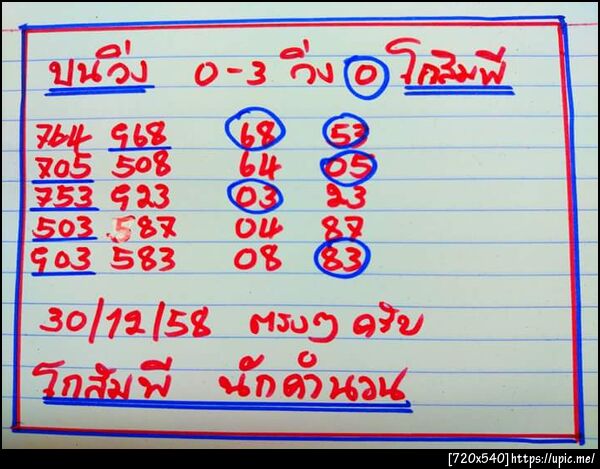 บนวิ่ง 0-3 วิ่ง 0 โกสัมพี
764 968 68 53
705 508 64 05
753 923 03 23
503 587 04 87
903 583 08 83
30/12/58 ตรงๆ ครับ
โกสัมพี นักคำนวน
[720x540]https://upic.me/